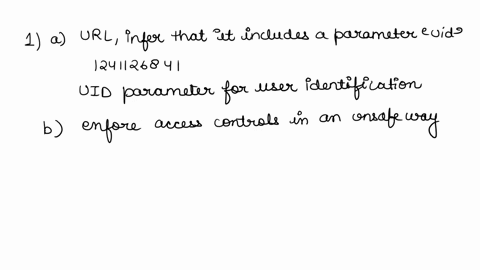 1) a) URL, infer that it includes a parameter 'uid'
1241126841
UID parameter for user identification
b) enfore access controls in an unsafe way